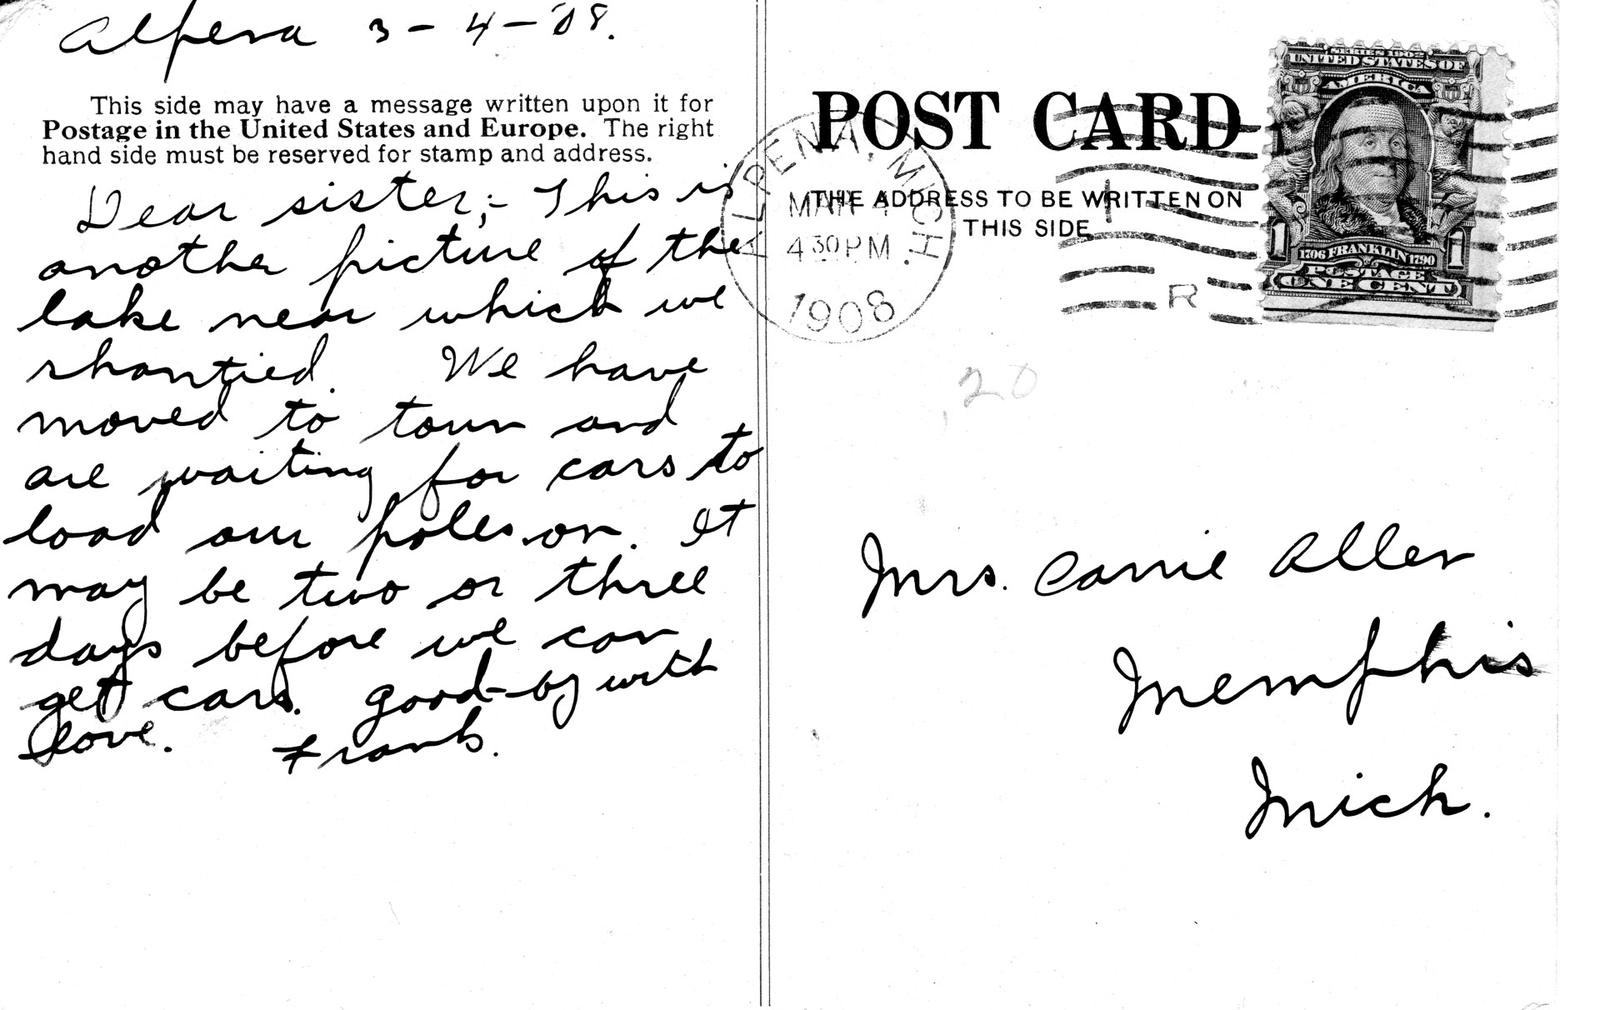 Alpena 3-4-'08.
This side may have a message written upon it for
Postage in the United States and Europe. The right
hand side must be reserved for stamp and address.
Dear sister;- This is
another picture of the
lake near which we
shantied. We have
moved to town and
are waiting for cars to
load our poles on. It
may be two or three
days before we can
get cars. good-by with
love. Frank.
POST CARD
THE ADDRESS TO BE WRITTEN ON
THIS SIDE
ALPENA, MICH.
MAR 4
4 30 PM
1908
R
SERIES 1902
UNITED STATES OF
AMERICA
1706 FRANKLIN 1790
1 POSTAGE 1
ONE CENT
20
Mrs. Carrie Allen
Memphis
Mich.